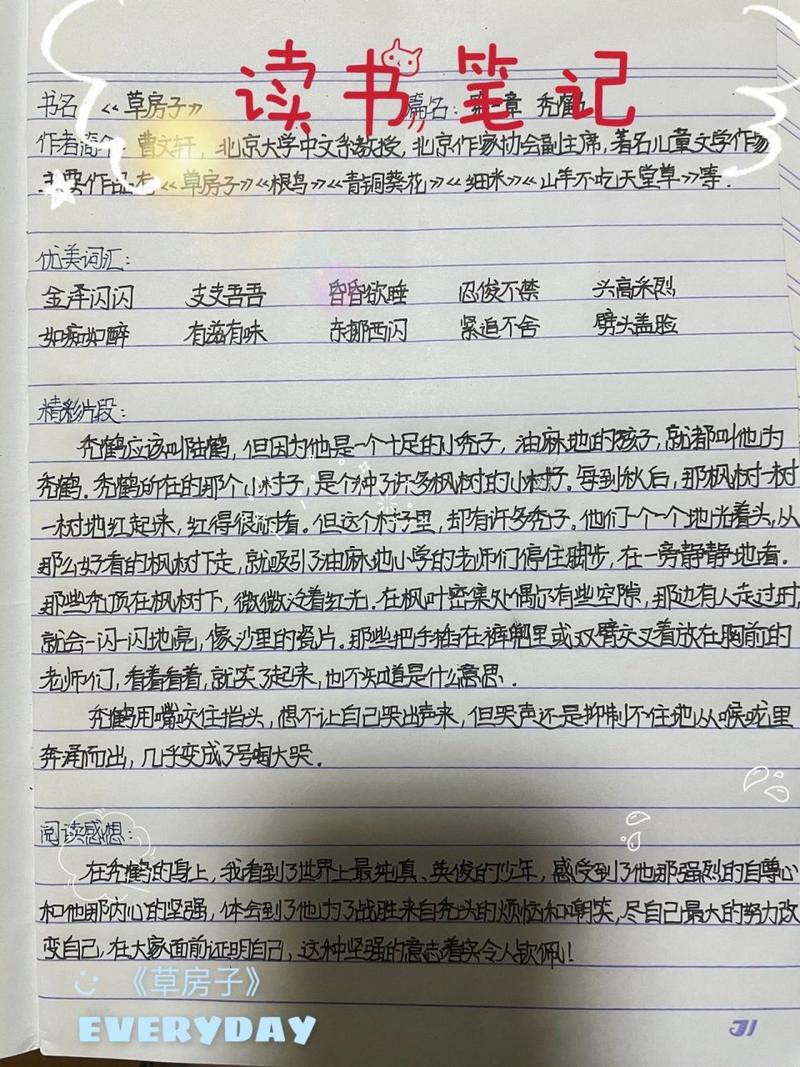 读书笔记
书名：《草房子》 篇名：第一章 秃鹤
作者简介：曹文轩，北京大学中文系教授，北京作家协会副主席，著名儿童文学作家
主要作品有《草房子》《根鸟》《青铜葵花》《细米》《山羊不吃天堂草》等．
优美词汇：
金泽闪闪 支支吾吾 昏昏欲睡 忍俊不禁 头高采烈
如痴如醉 有滋有味 东挪西闪 紧追不舍 劈头盖脸
精彩片段：
秃鹤应该叫陆鹤，但因为他是一个十足的小秃子，油麻地的孩子，就都叫他为
秃鹤．秃鹤所在的那个小村子，是个种了许多枫树的小村子．每到秋后，那枫树一树
一树地红起来，红得很耐看．但这个村子里，却有许多秃子．他们一个一个地光着头，从
那么好看的枫树下走，就吸引了油麻地小学的老师们停住脚步，在一旁静静地看．
那些秃顶在枫树下，微微泛着红光．在枫叶密集处偶尔有些空隙，那边有人走过时，
就会一闪一闪地亮，像沙里的瓷片．那些把手插在裤兜里或双臂交叉着放在胸前的
老师们，看着看着，就笑了起来，也不知道是什么意思．
秃鹤用嘴咬住指头，想不让自己哭出声来，但哭声还是抑制不住地从喉咙里
奔涌而出，几乎变成了号啕大哭．
阅读感想：
在秃鹤的身上，我看到了世界上最纯真、英俊的少年，感受到了他那强烈的自尊心
和他那内心的坚强，体会到了他为了战胜来自秃头的烦恼和嘲笑，尽自己最大的努力改
变自己，在大家面前证明自己，这种坚强的意志着实令人钦佩！
《草房子》
EVERYDAY